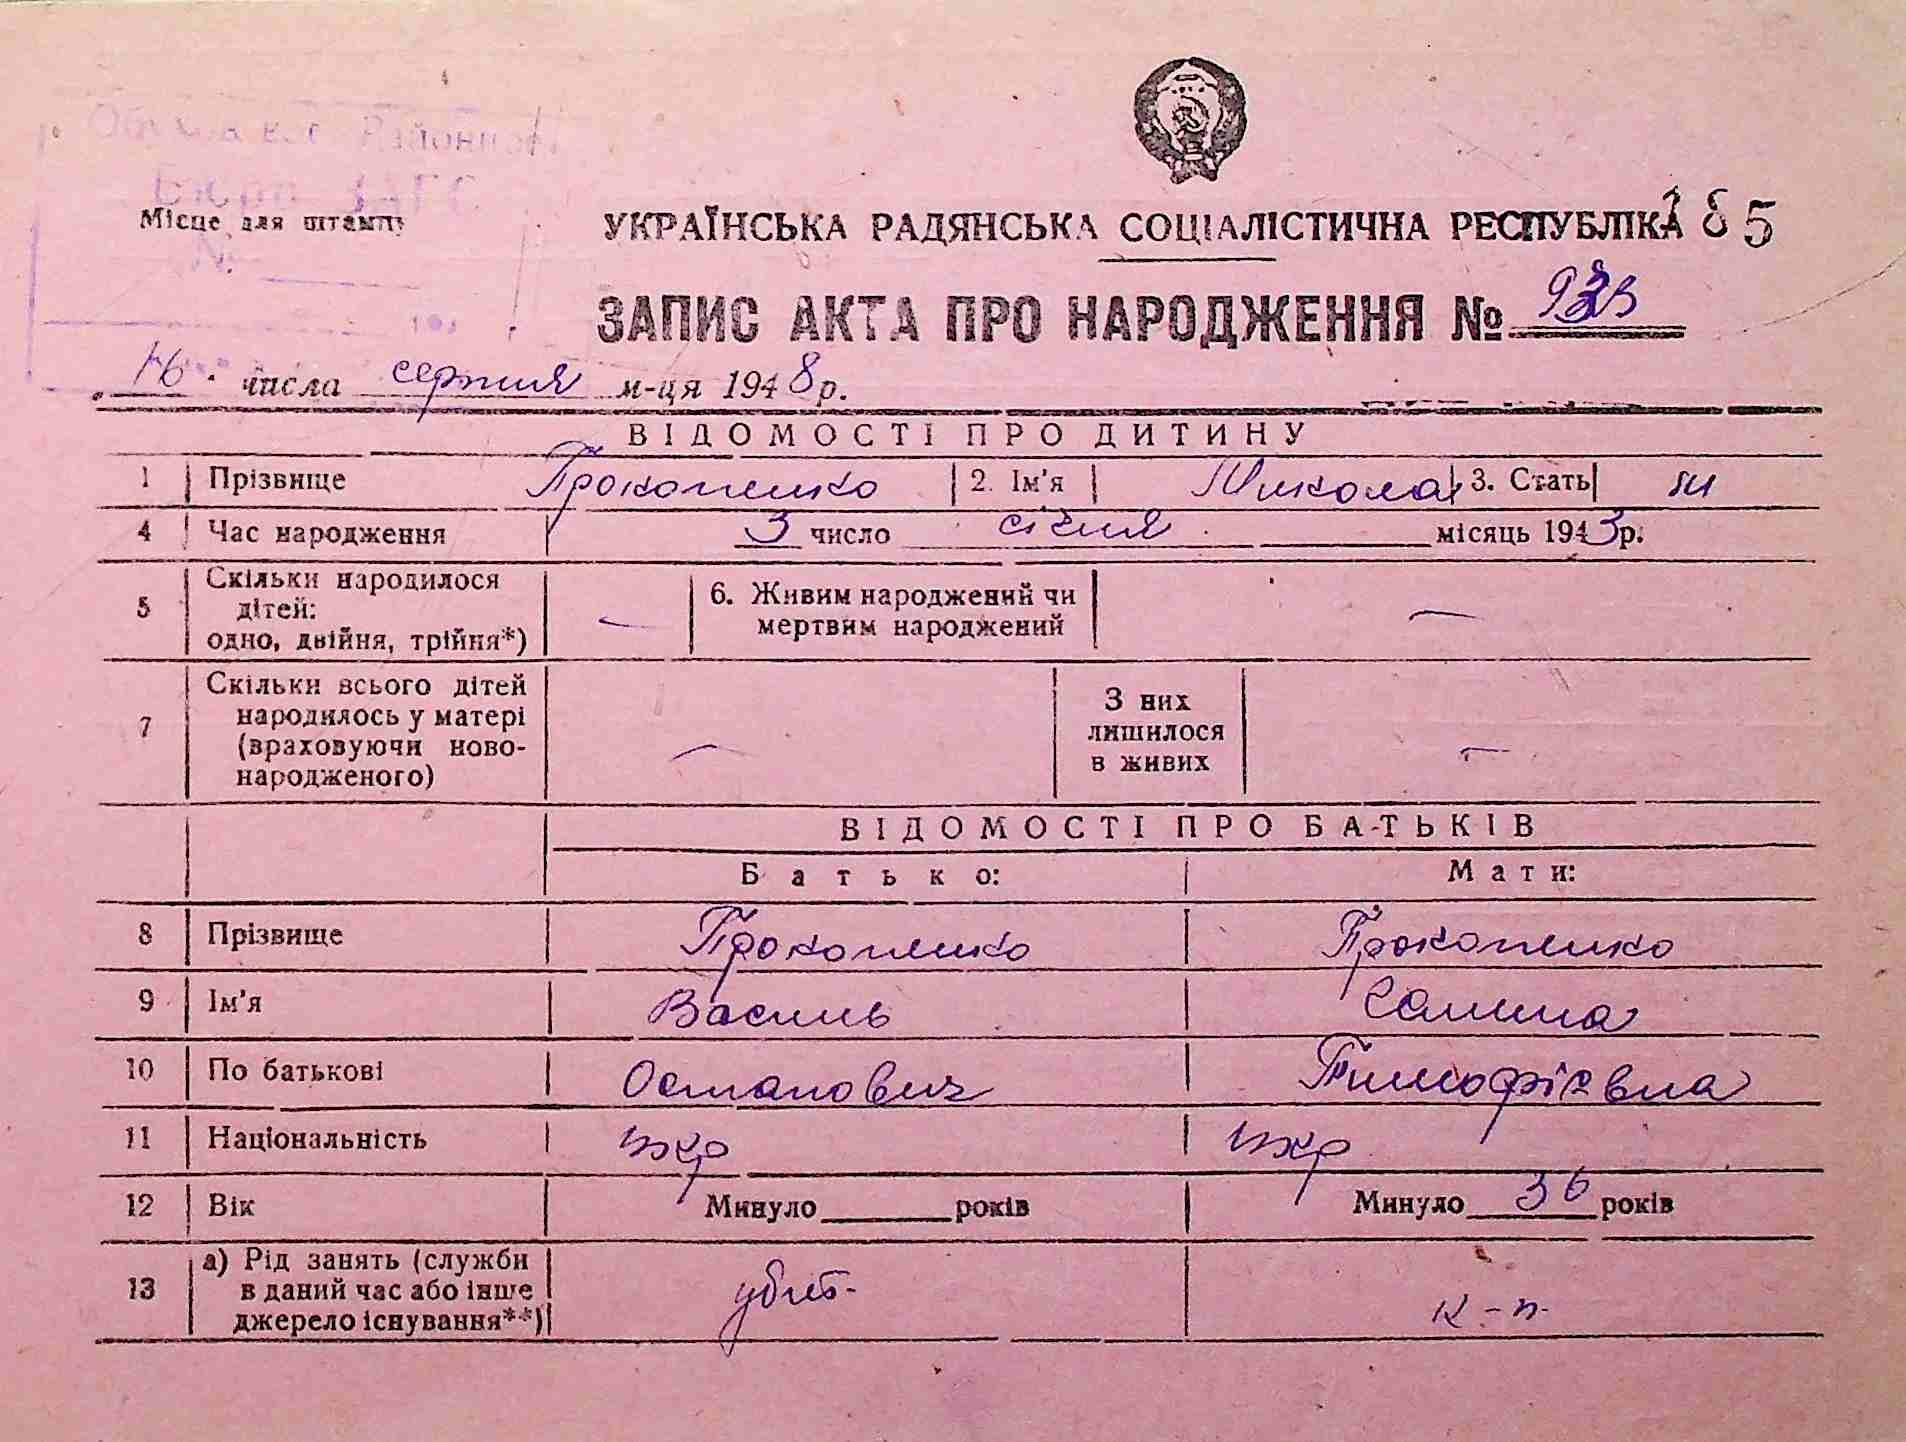 Районн
Бюро ЗАГС
Місце для штампу
№
УКРАЇНСЬКА РАДЯНСЬКА СОЦІАЛІСТИЧНА РЕСПУБЛІКА
85
ЗАПИС АКТА ПРО НАРОДЖЕННЯ №
16 числа серпня м-ця 1948 р.
ВІДОМОСТІ ПРО ДИТИНУ
1 Прізвище Прокопенко 2. Ім'я Микола 3. Стать
4 Час народження 3 число січня місяць 1943 р.
5 Скільки народилося дітей: одно, двійня, трійня*) — 6. Живим народжений чи мертвим народжений —
7 Скільки всього дітей народилось у матері (враховуючи ново-народженого) — З них лишилося в живих —
ВІДОМОСТІ ПРО БАТЬКІВ
Батько: Мати:
8 Прізвище Прокопенко Прокопенко
9 Ім'я Василь Галина
10 По батькові Остапович Тимофієвна
11 Національність укр укр
12 Вік Минуло років Минуло 36 років
13 а) Рід занять (служби в даний час або інше джерело існування**) убит- к-п-